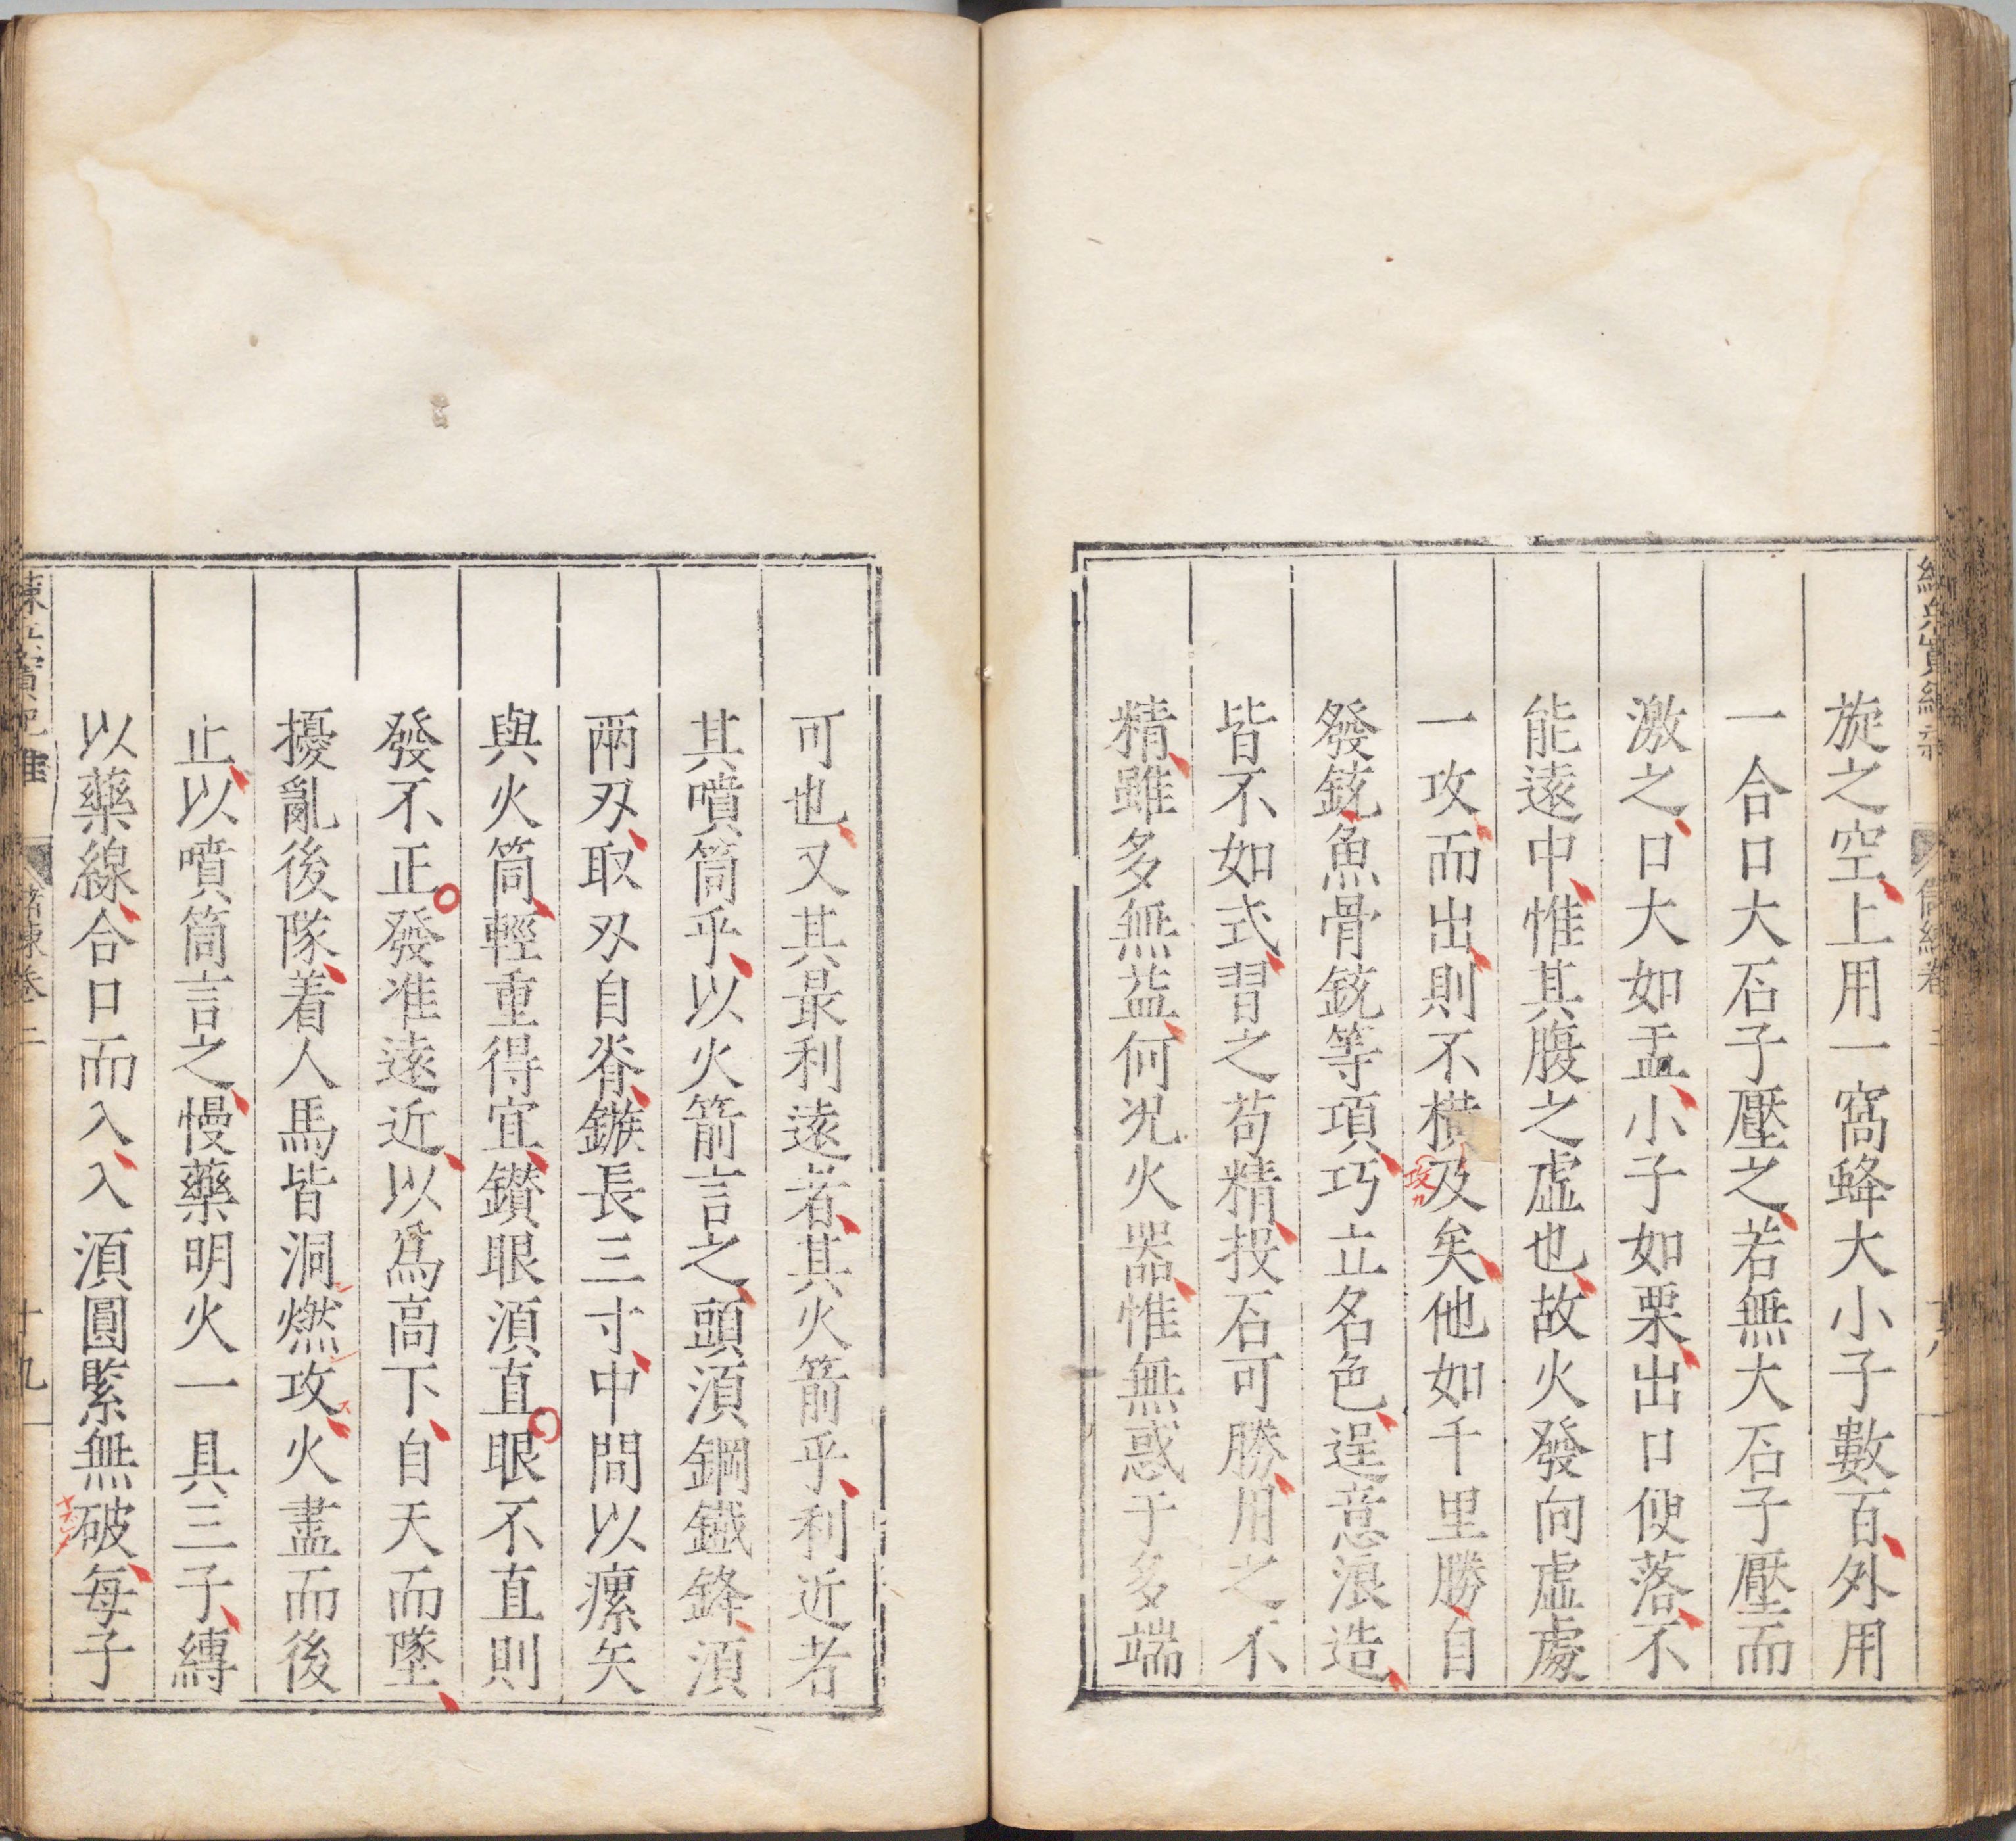 旋之空上用一窩蜂大小子數百外用
一合口大石子壓之若無大石子壓而
激之口大如盂小子如栗出口便落不
能遠中惟其腹之虛也故火發向虛處
一攻而出則不橫及矣他如千里勝自
發銃魚骨銃等項巧立名色逞意浪造
皆不如式習之苟精投石可勝用之不
精雖多無益何况火器惟無惑于多端
可也又其最利遠者其火箭乎利近者
其噴筒乎以火箭言之頭湏鋼鐵鋒湏
兩刄取刄自脊鏃長三寸中間以瘰矢
與火筒輕重得宜鑚眼湏直眼不直則
發不正發准遠近以爲高下自天而墜
擾亂後隊着人馬皆洞燃攻火盡而後
止以噴筒言之慢藥明火一具三子縳
以藥線合口而入入湏圓緊無破每子
練兵實紀雜
卷二
十九